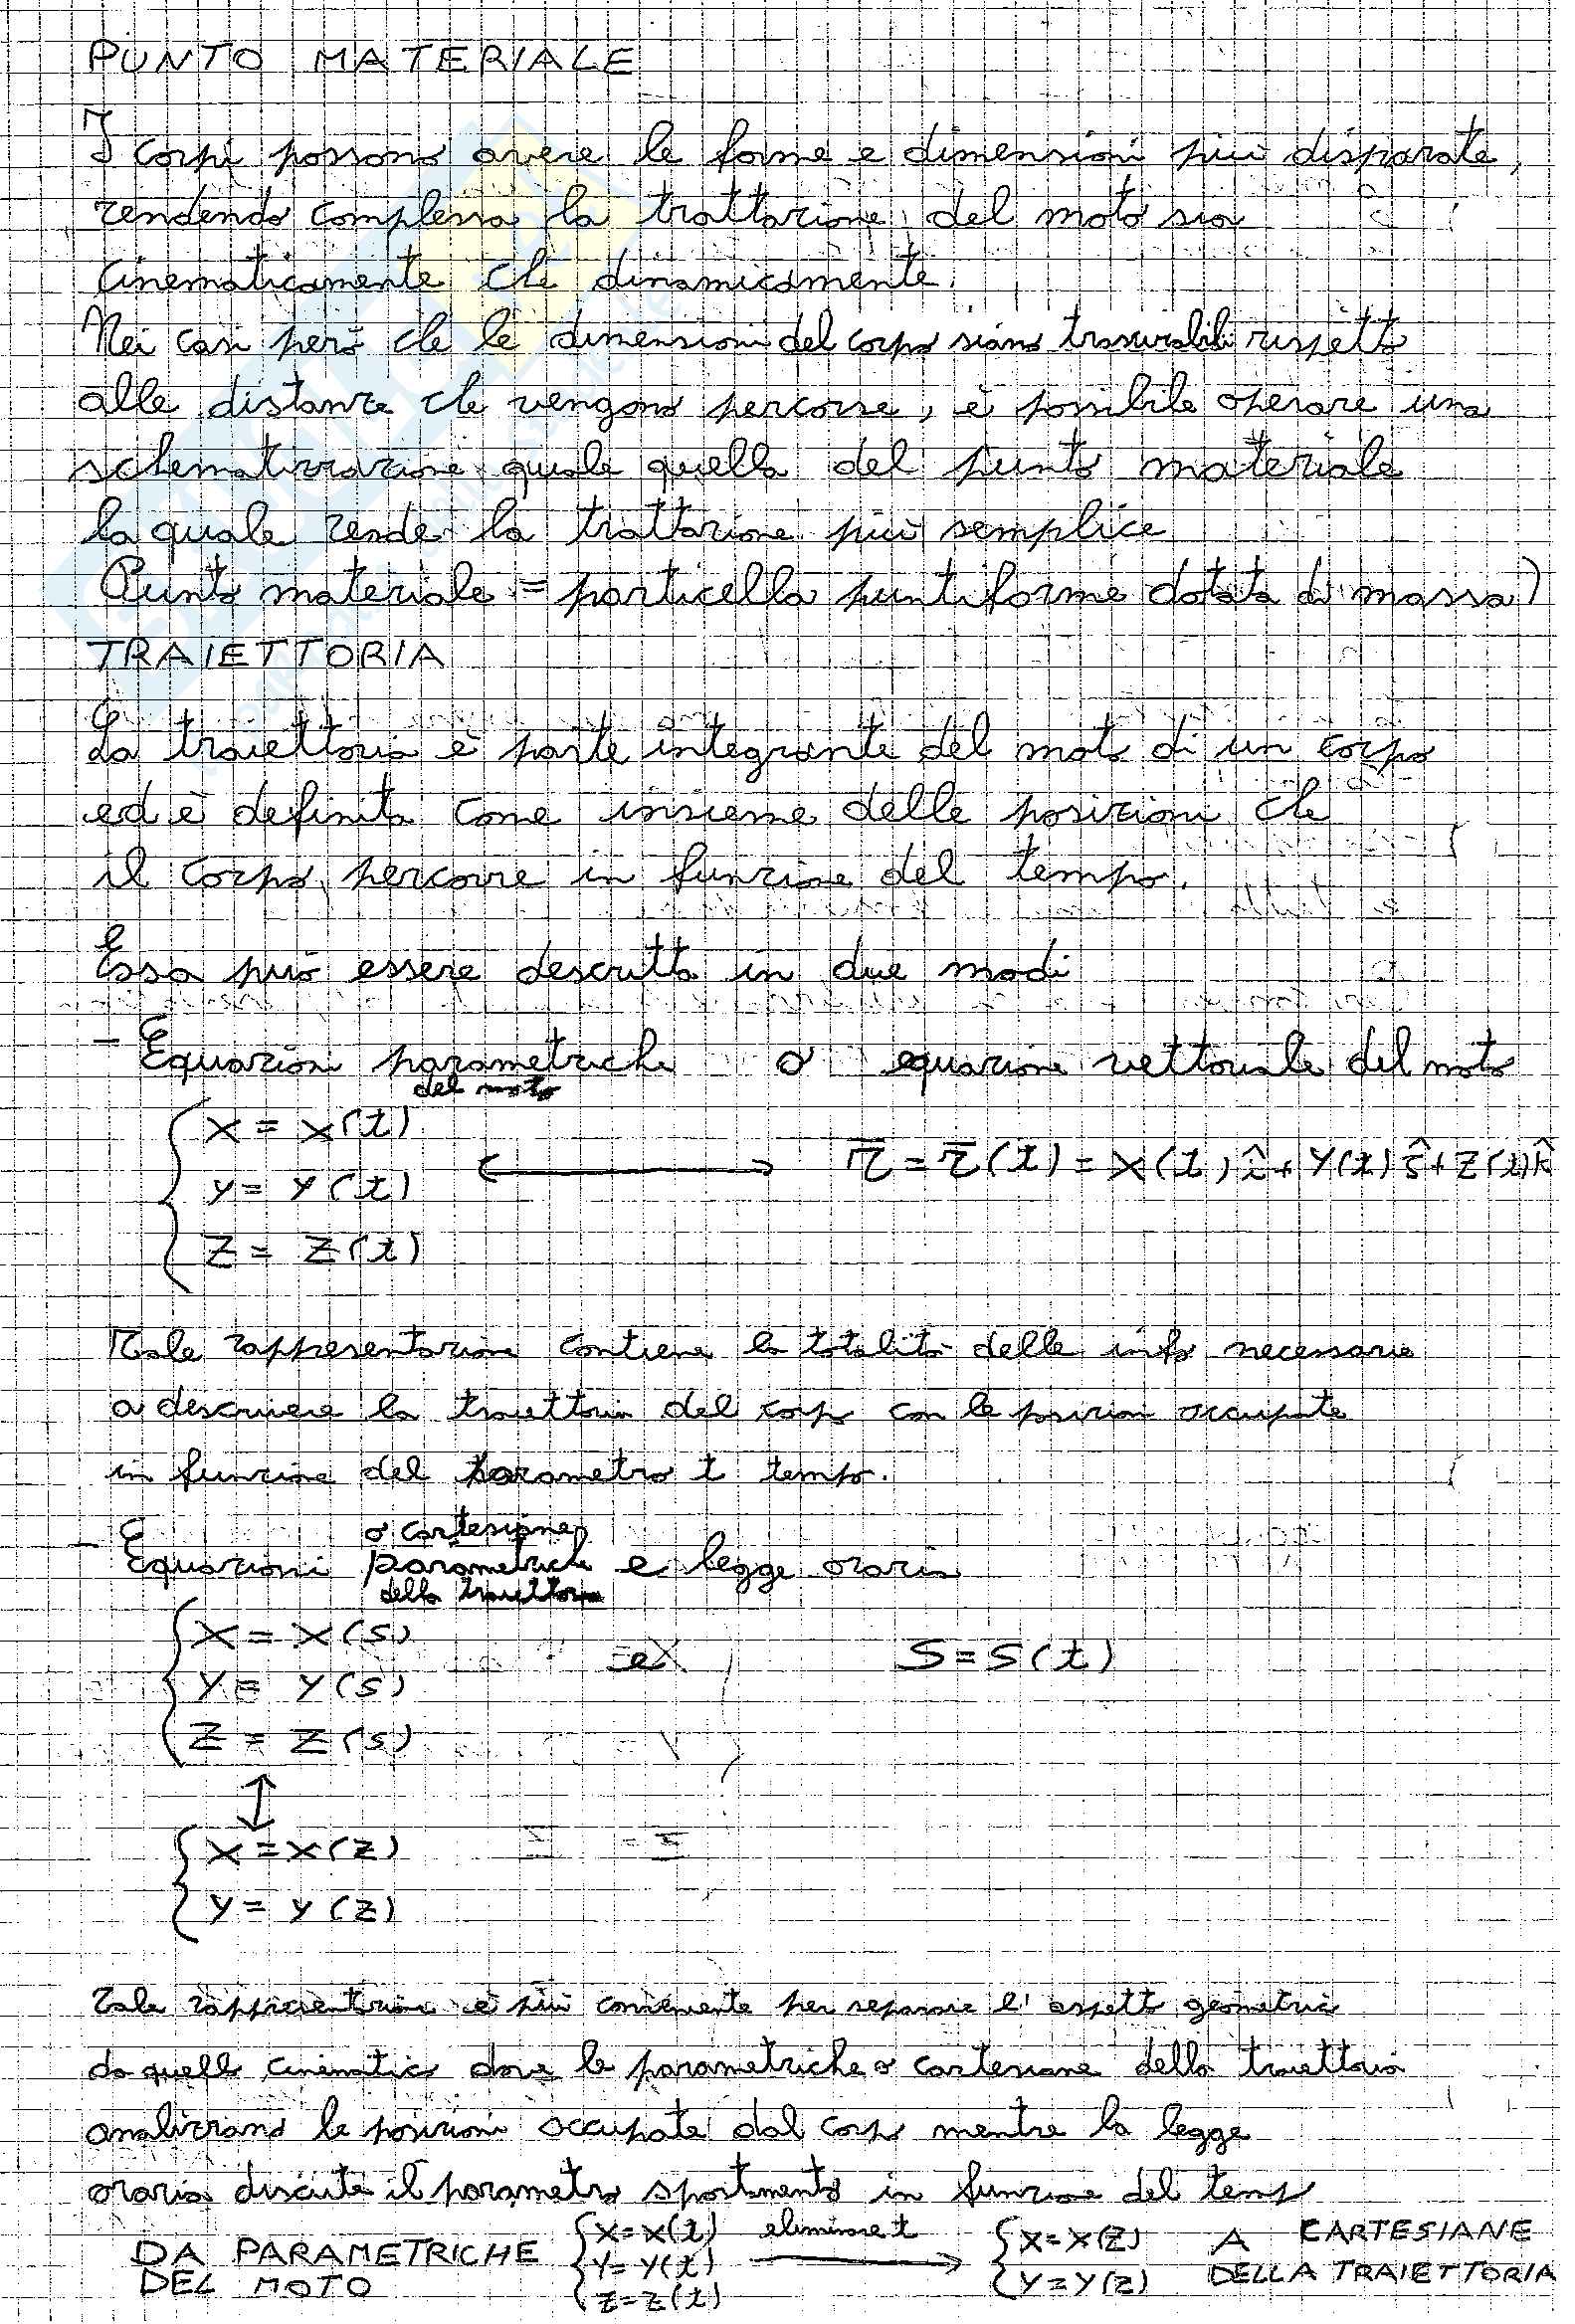 PUNTO MATERIALE
I corpi possono avere le forme e dimensioni più disparate,
rendendo complessa la trattazione del moto sia
cinematicamente che dinamicamente.
Nei casi però che le dimensioni del corpo siano trascurabili rispetto
alle distanze che vengono percorse, è possibile operare una
schematizzazione quale quella del punto materiale
la quale rende la trattazione più semplice
Punto materiale = particella puntiforme dotata di massa)
TRAIETTORIA
La traiettoria è parte integrante del moto di un corpo
ed è definita come insieme delle posizioni che
il corpo percorre in funzione del tempo.
Essa può essere descritta in due modi
- Equazioni parametriche o equazione vettoriale del moto
del moto
x = x(t)
y = y(t) ⟷ r̅ = r̅(t) = x(t) î + y(t) ĵ + z(t) k̂
z = z(t)
Tale rappresentazione contiene la totalità delle info necessarie
a descrivere la traiettoria del corpo con le posizioni occupate
in funzione del parametro t tempo.
o cartesiane
- Equazioni parametriche e legge oraria
della traiettoria
x = x(s)
y = y(s) e s = s(t)
z = z(s)
↕
x = x(z)
y = y(z)
Tale rappresentazione è più conveniente per separare l'aspetto geometrico
da quello cinematico dove le parametriche o cartesiane della traiettoria
analizzano le posizioni occupate dal corpo mentre la legge
oraria discute il parametro spostamento in funzione del tempo
DA PARAMETRICHE DEL MOTO
x = x(t)
y = y(t)
z = z(t)
eliminare t ⟶
x = x(z)
y = y(z)
A CARTESIANE
DELLA TRAIETTORIA